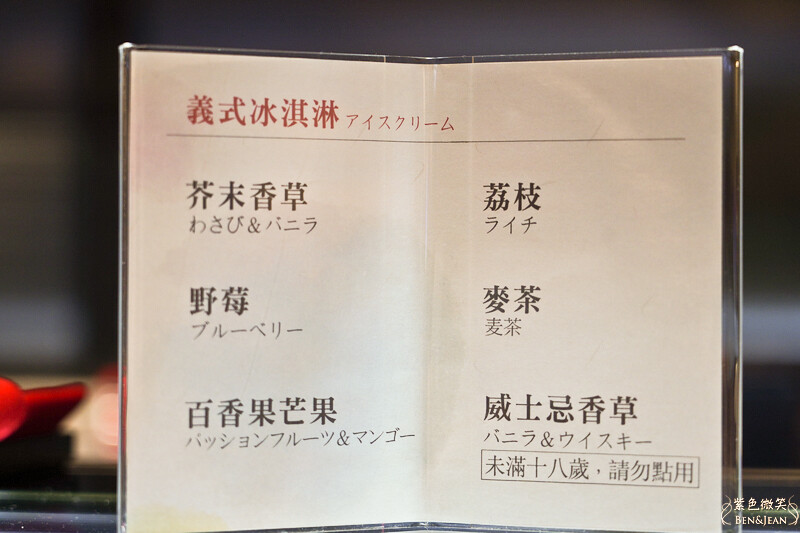 義式冰淇淋 アイスクリーム
芥末香草
わさび&バニラ
野莓
ブルーベリー
百香果芒果
パッションフルーツ&マンゴー
荔枝
ライチ
麥茶
麦茶
威士忌香草
バニラ&ウイスキー
未滿十八歲,請勿點用
紫色微笑
BEN&JEAN